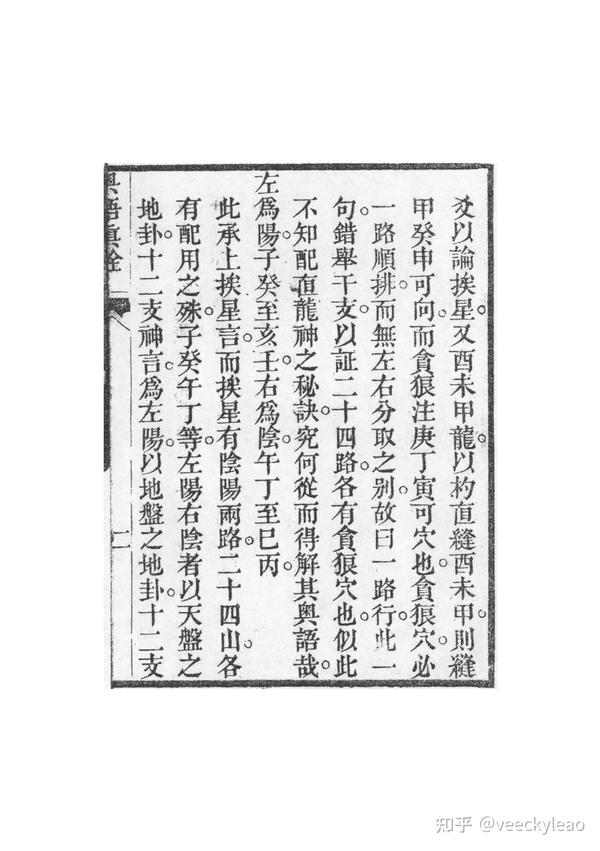 爻以論挨星。又酉未甲龍。以杓直縫酉未甲。則縫
甲癸申可向。而貪狼注庚丁寅可穴也。貪狼穴。必
一路順排。而無左右分取之別。故曰一路行。此一
句。錯舉干支。以証二十四路各有貪狼穴也。似此
不知配直龍神之秘訣。究何從而得解其奧語哉。
左爲陽。子癸至亥壬。右爲陰。午丁至巳丙。
此承上挨星言。而挨星有陰陽兩路。二十四山。各
有配用之殊。子癸午丁等。左陽右陰者。以天盤之
地卦十二支神言。爲左陽。以地盤之地卦。十二支
奧語真詮
二
知乎 @veeckyleao